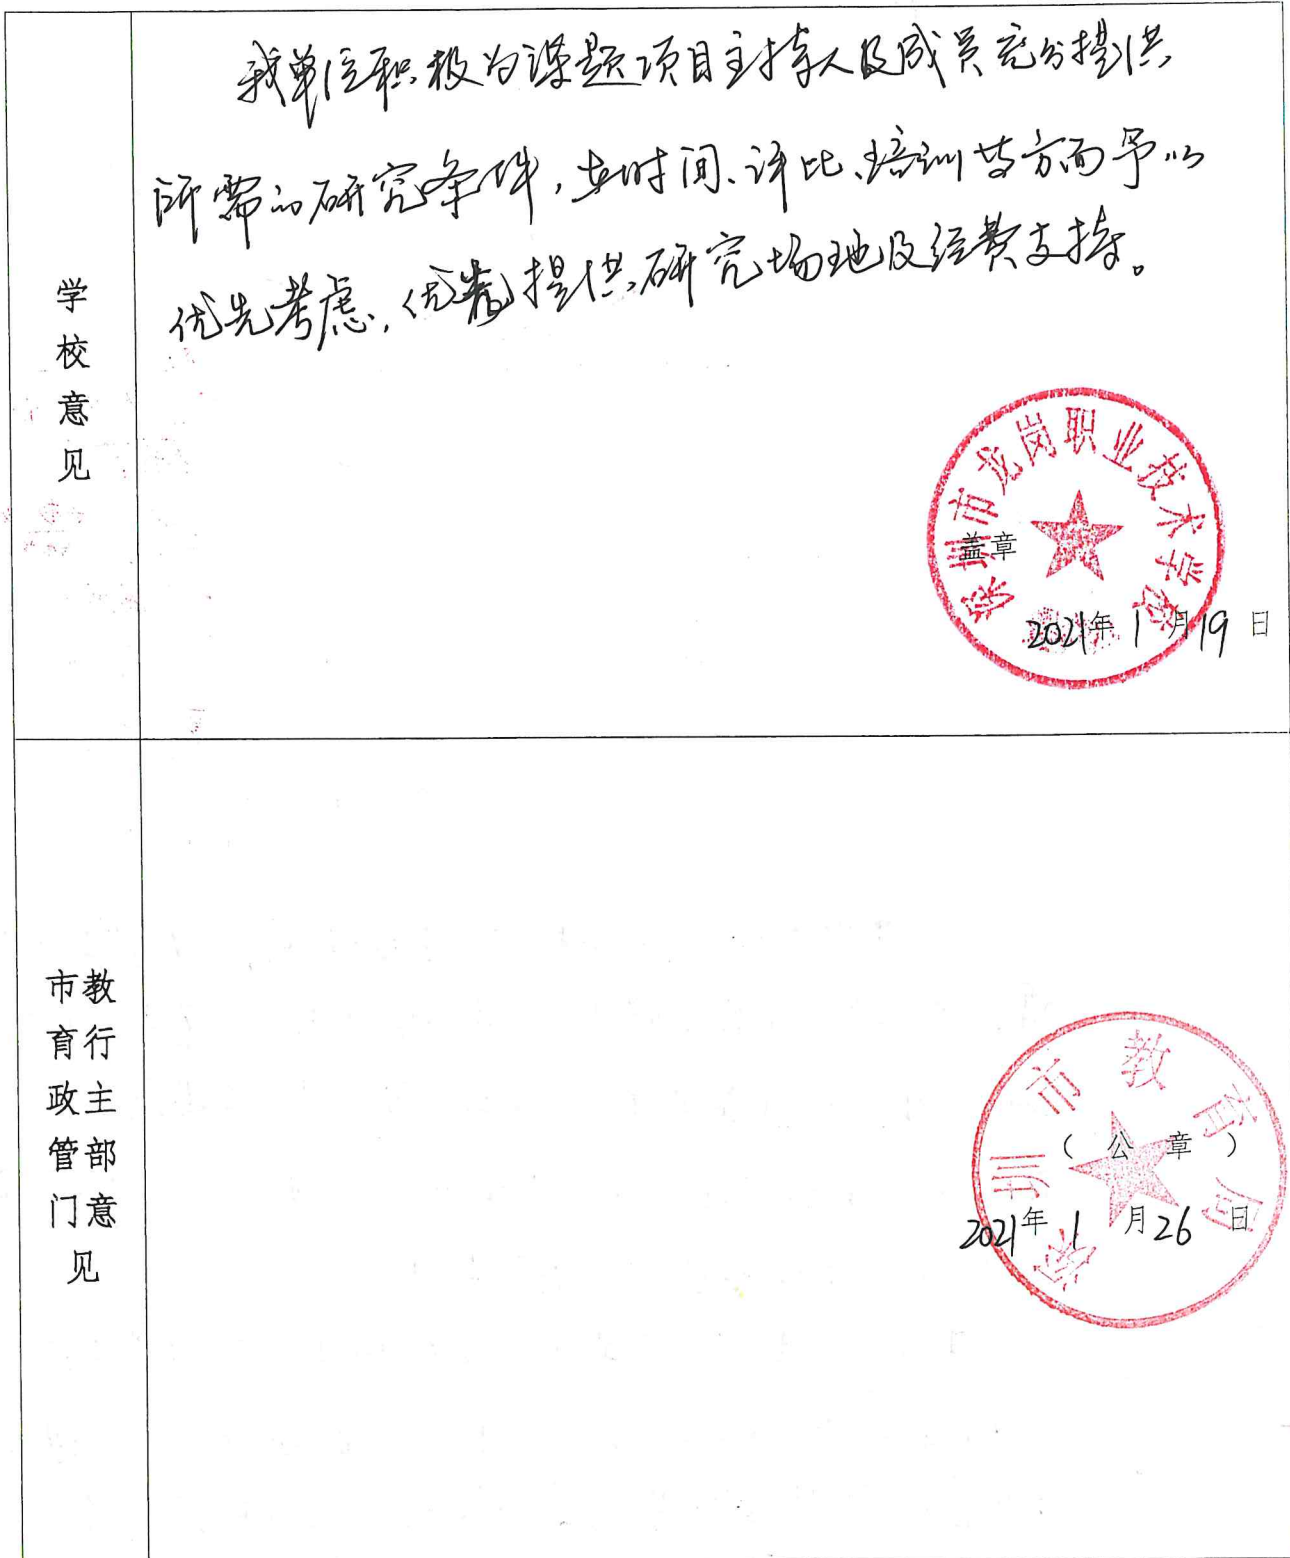 学校意见
我单位积极为课题项目主持人及成员充分提供
所需的研究条件,在时间、评比、培训等方面予以
优先考虑,优先提供研究场地及经费支持。
深圳市龙岗职业技术学校
盖章
2021年1月19日
市教育行政主管部门意见
深圳市教育局
(公章)
2021年1月26日